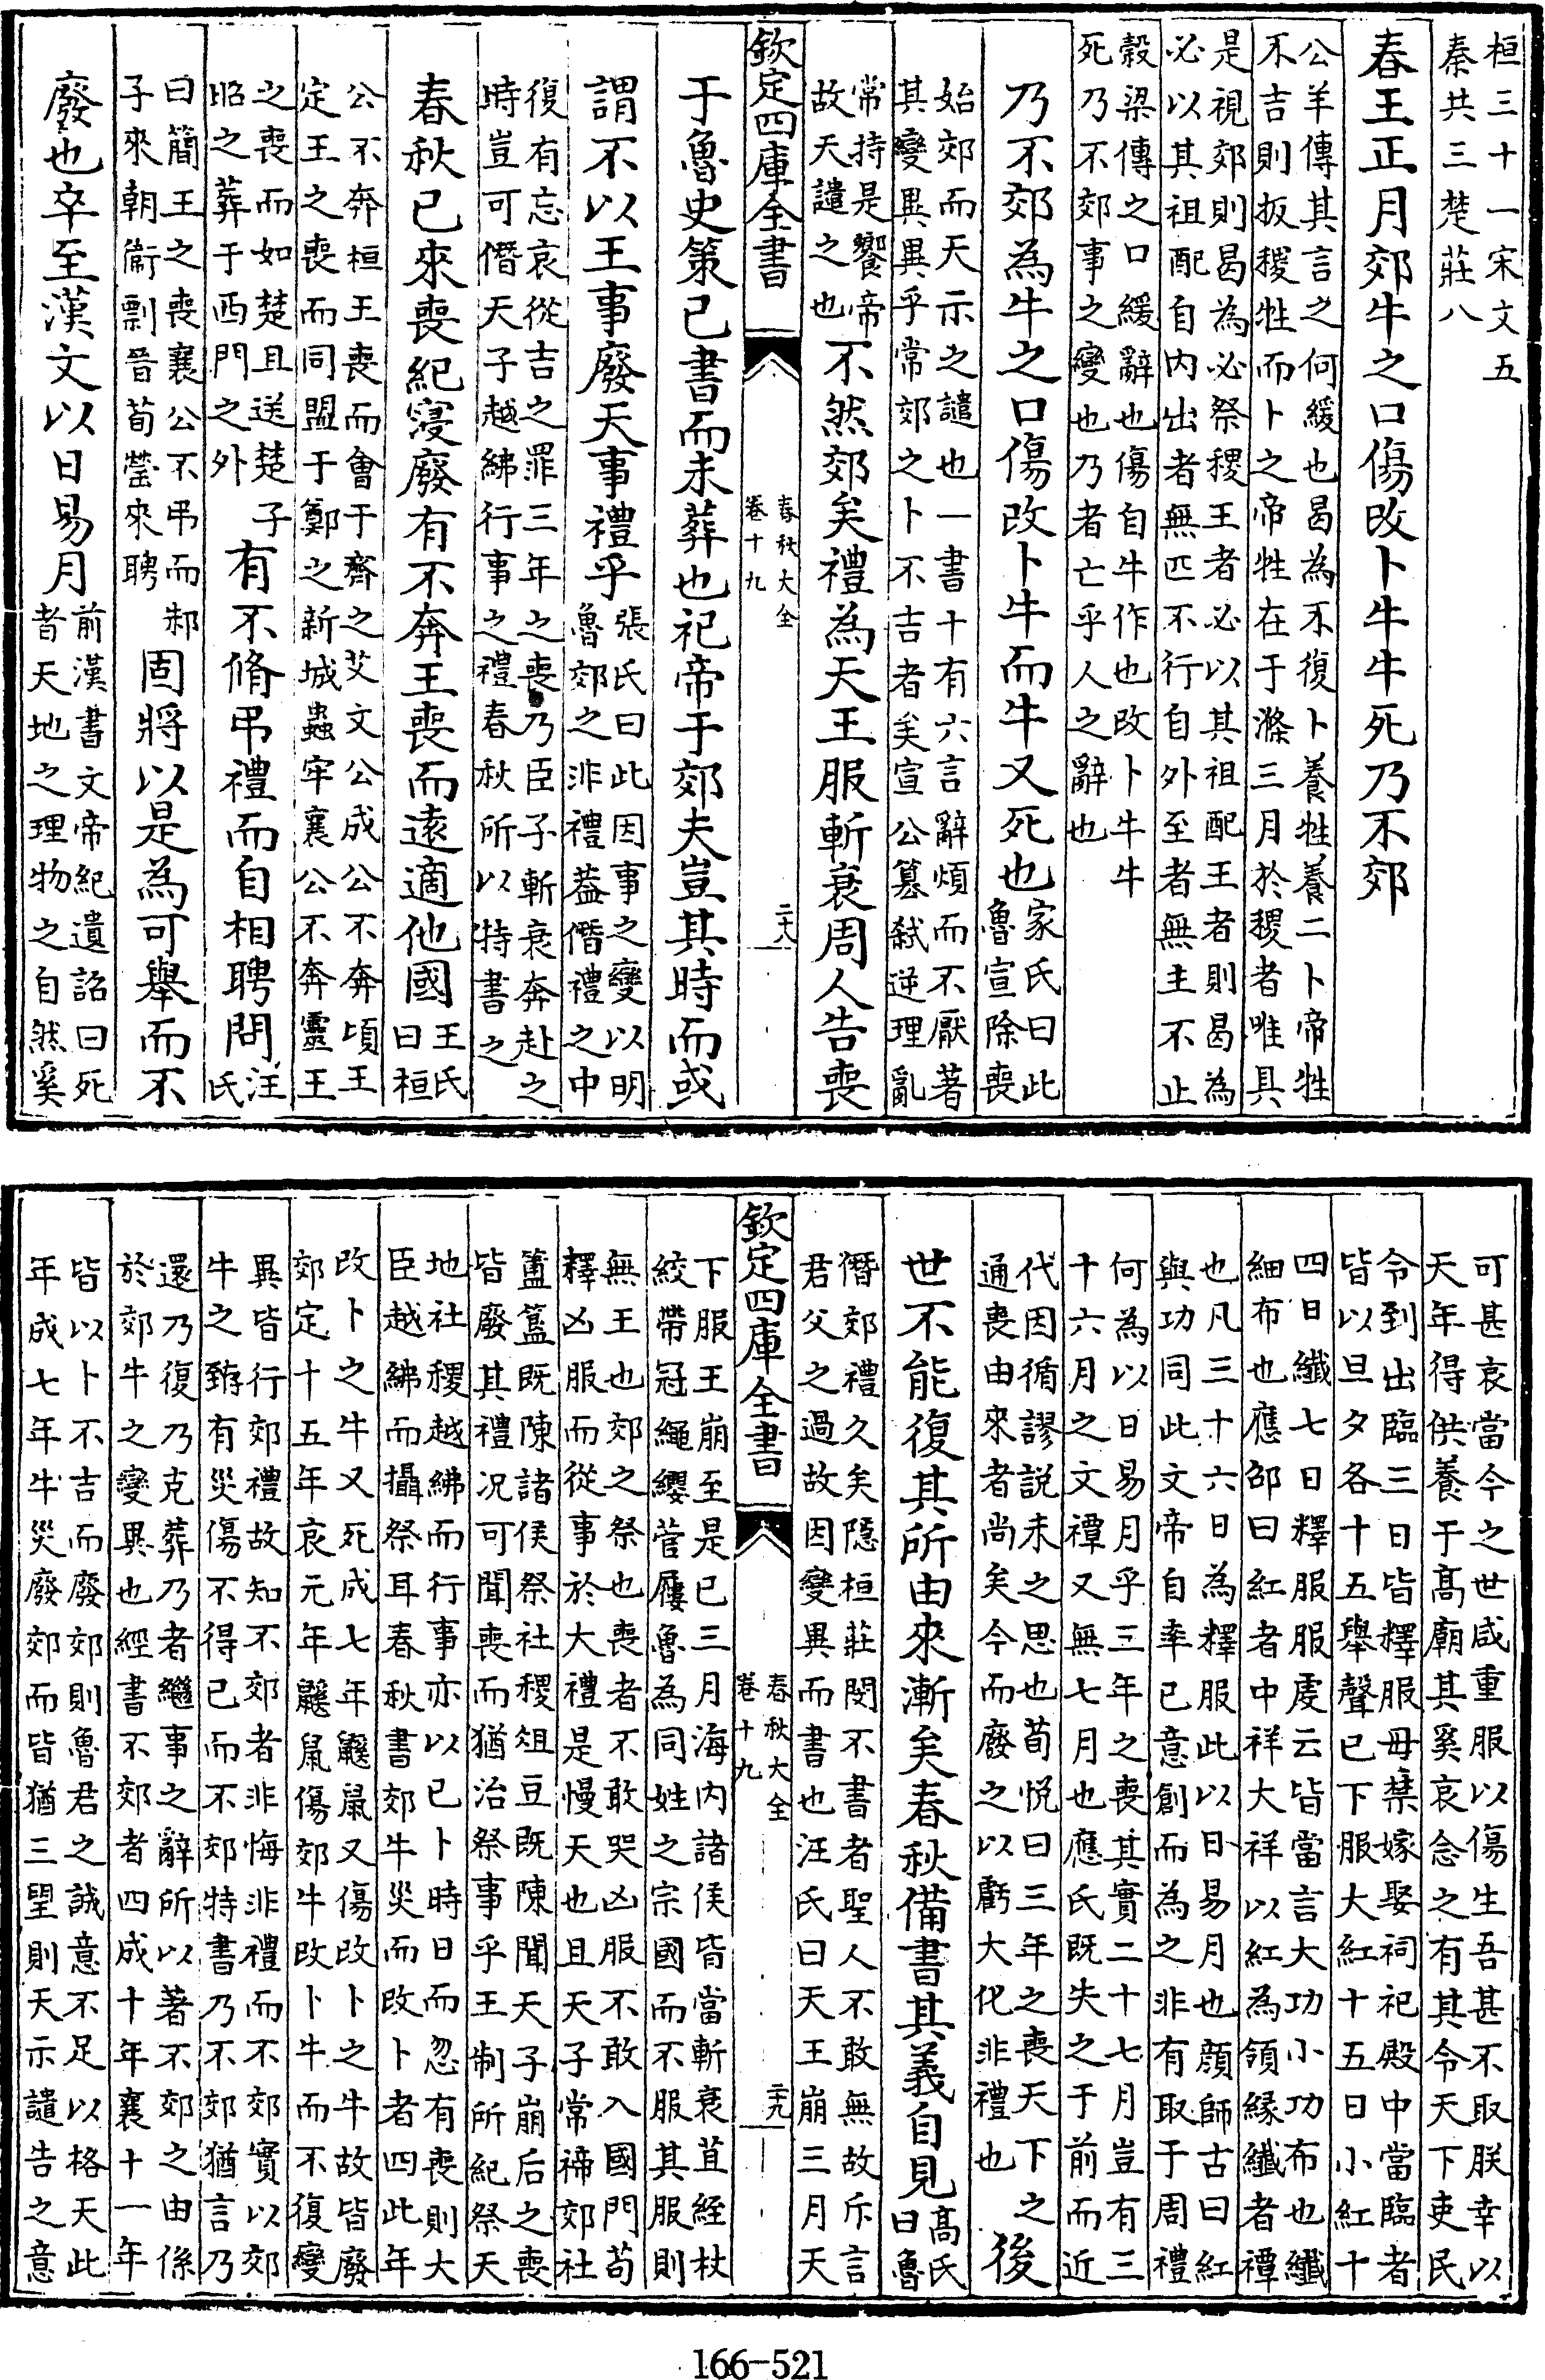 桓三十一宋文五
秦共三楚莊八
春王正月郊牛之口傷改卜牛牛死乃不郊
公羊傳其言之何緩也曷為不復卜養牲養二卜帝牲
不吉則扳稷牲而卜之帝牲在于滌三月於稷者唯具
是視郊則曷為必祭稷王者必以其祖配王者則曷為
必以其祖配自内出者無匹不行自外至者無主不止
穀梁傳之口緩辭也傷自牛作也改卜牛牛
死乃不郊事之變也乃者亡乎人之辭也
乃不郊為牛之口傷改卜牛而牛又死也
家氏曰此
魯宣除喪
始郊而天示之譴也一書十有六言辭煩而不厭著
其變異異乎常郊之卜不吉者矣宣公篡弑逆理亂
常持是饗帝
故天譴之也
不然郊矣禮為天王服斬衰周人告喪
欽定四庫全書
春秋大全
卷十九
二十八
于魯史策已書而未葬也祀帝于郊夫豈其時而或
謂不以王事廢天事禮乎
張氏曰此因事之變以明
魯郊之非禮葢僭禮之中
復有忘哀從吉之罪三年之喪乃臣子斬衰奔赴之
時豈可僭天子越紼行事之禮春秋所以特書之
春秋已來喪紀寖廢有不奔王喪而逺適他國
王氏
曰桓
公不奔桓王喪而會于齊之艾文公成公不奔頃王
定王之喪而同盟于鄭之新城蟲牢襄公不奔靈王
之喪而如楚且送楚子
昭之葬于西門之外
有不脩弔禮而自相聘問
汪
氏
曰簡王之喪襄公不弔而邾
子來朝衞剽晉荀罃來聘
固將以是為可舉而不
廢也卒至漢文以日易月
前漢書文帝紀遺詔曰死
者天地之理物之自然奚
可甚哀當今之世咸重服以傷生吾甚不取朕幸以
天年得供養于髙廟其奚哀念之有其令天下吏民
令到出臨三日皆釋服毋禁嫁娶祠祀殿中當臨者
皆以旦夕各十五舉聲已下服大紅十五日小紅十
四日纖七日釋服服䖍云皆當言大功小功布也纖
細布也應邵曰紅者中祥大祥以紅為領緣纖者禫
也凡三十六日為釋服此以日易月也顔師古曰紅
與功同此文帝自率已意創而為之非有取于周禮
何為以日易月乎三年之喪其實二十七月豈有三
十六月之文禫又無七月也應氏既失之于前而近
代因循謬説未之思也荀悦曰三年之喪天下之
通喪由來者尚矣今而廢之以虧大化非禮也
後
世不能復其所由來漸矣春秋備書其義自見
髙氏
曰魯
僭郊禮久矣隱桓莊閔不書者聖人不敢無故斥言
君父之過故因變異而書也汪氏曰天王崩三月天
欽定四庫全書
春秋大全
卷十九
二十九
下服王崩至是已三月海内諸侯皆當斬衰苴絰杖
絞帶冠繩纓菅屨魯為同姓之宗國而不服其服則
無王也郊之祭也喪者不敢哭凶服不敢入國門茍
釋凶服而從事於大禮是慢天也且天子常禘郊社
簠簋既陳諸侯祭社稷俎豆既陳聞天子崩后之喪
皆廢其禮况可聞喪而猶治祭事乎王制所紀祭天
地社稷越紼而行事亦以已卜時日而忽有喪則大
臣越紼而攝祭耳春秋書郊牛災而改卜者四此年
改卜之牛又死成七年鼷鼠又傷改卜之牛故皆廢
郊定十五年哀元年鼷鼠傷郊牛改卜牛而不復變
異皆行郊禮故知不郊者非悔非禮而不郊實以郊
牛之𦤺有災傷不得已而不郊特書乃不郊猶言乃
還乃復乃克葬乃者繼事之辭所以著不郊之由係
於郊牛之變異也經書不郊者四成十年襄十一年
皆以卜不吉而廢郊則魯君之誠意不足以格天此
年成七年牛災廢郊而皆猶三望則天示譴告之意
166-521